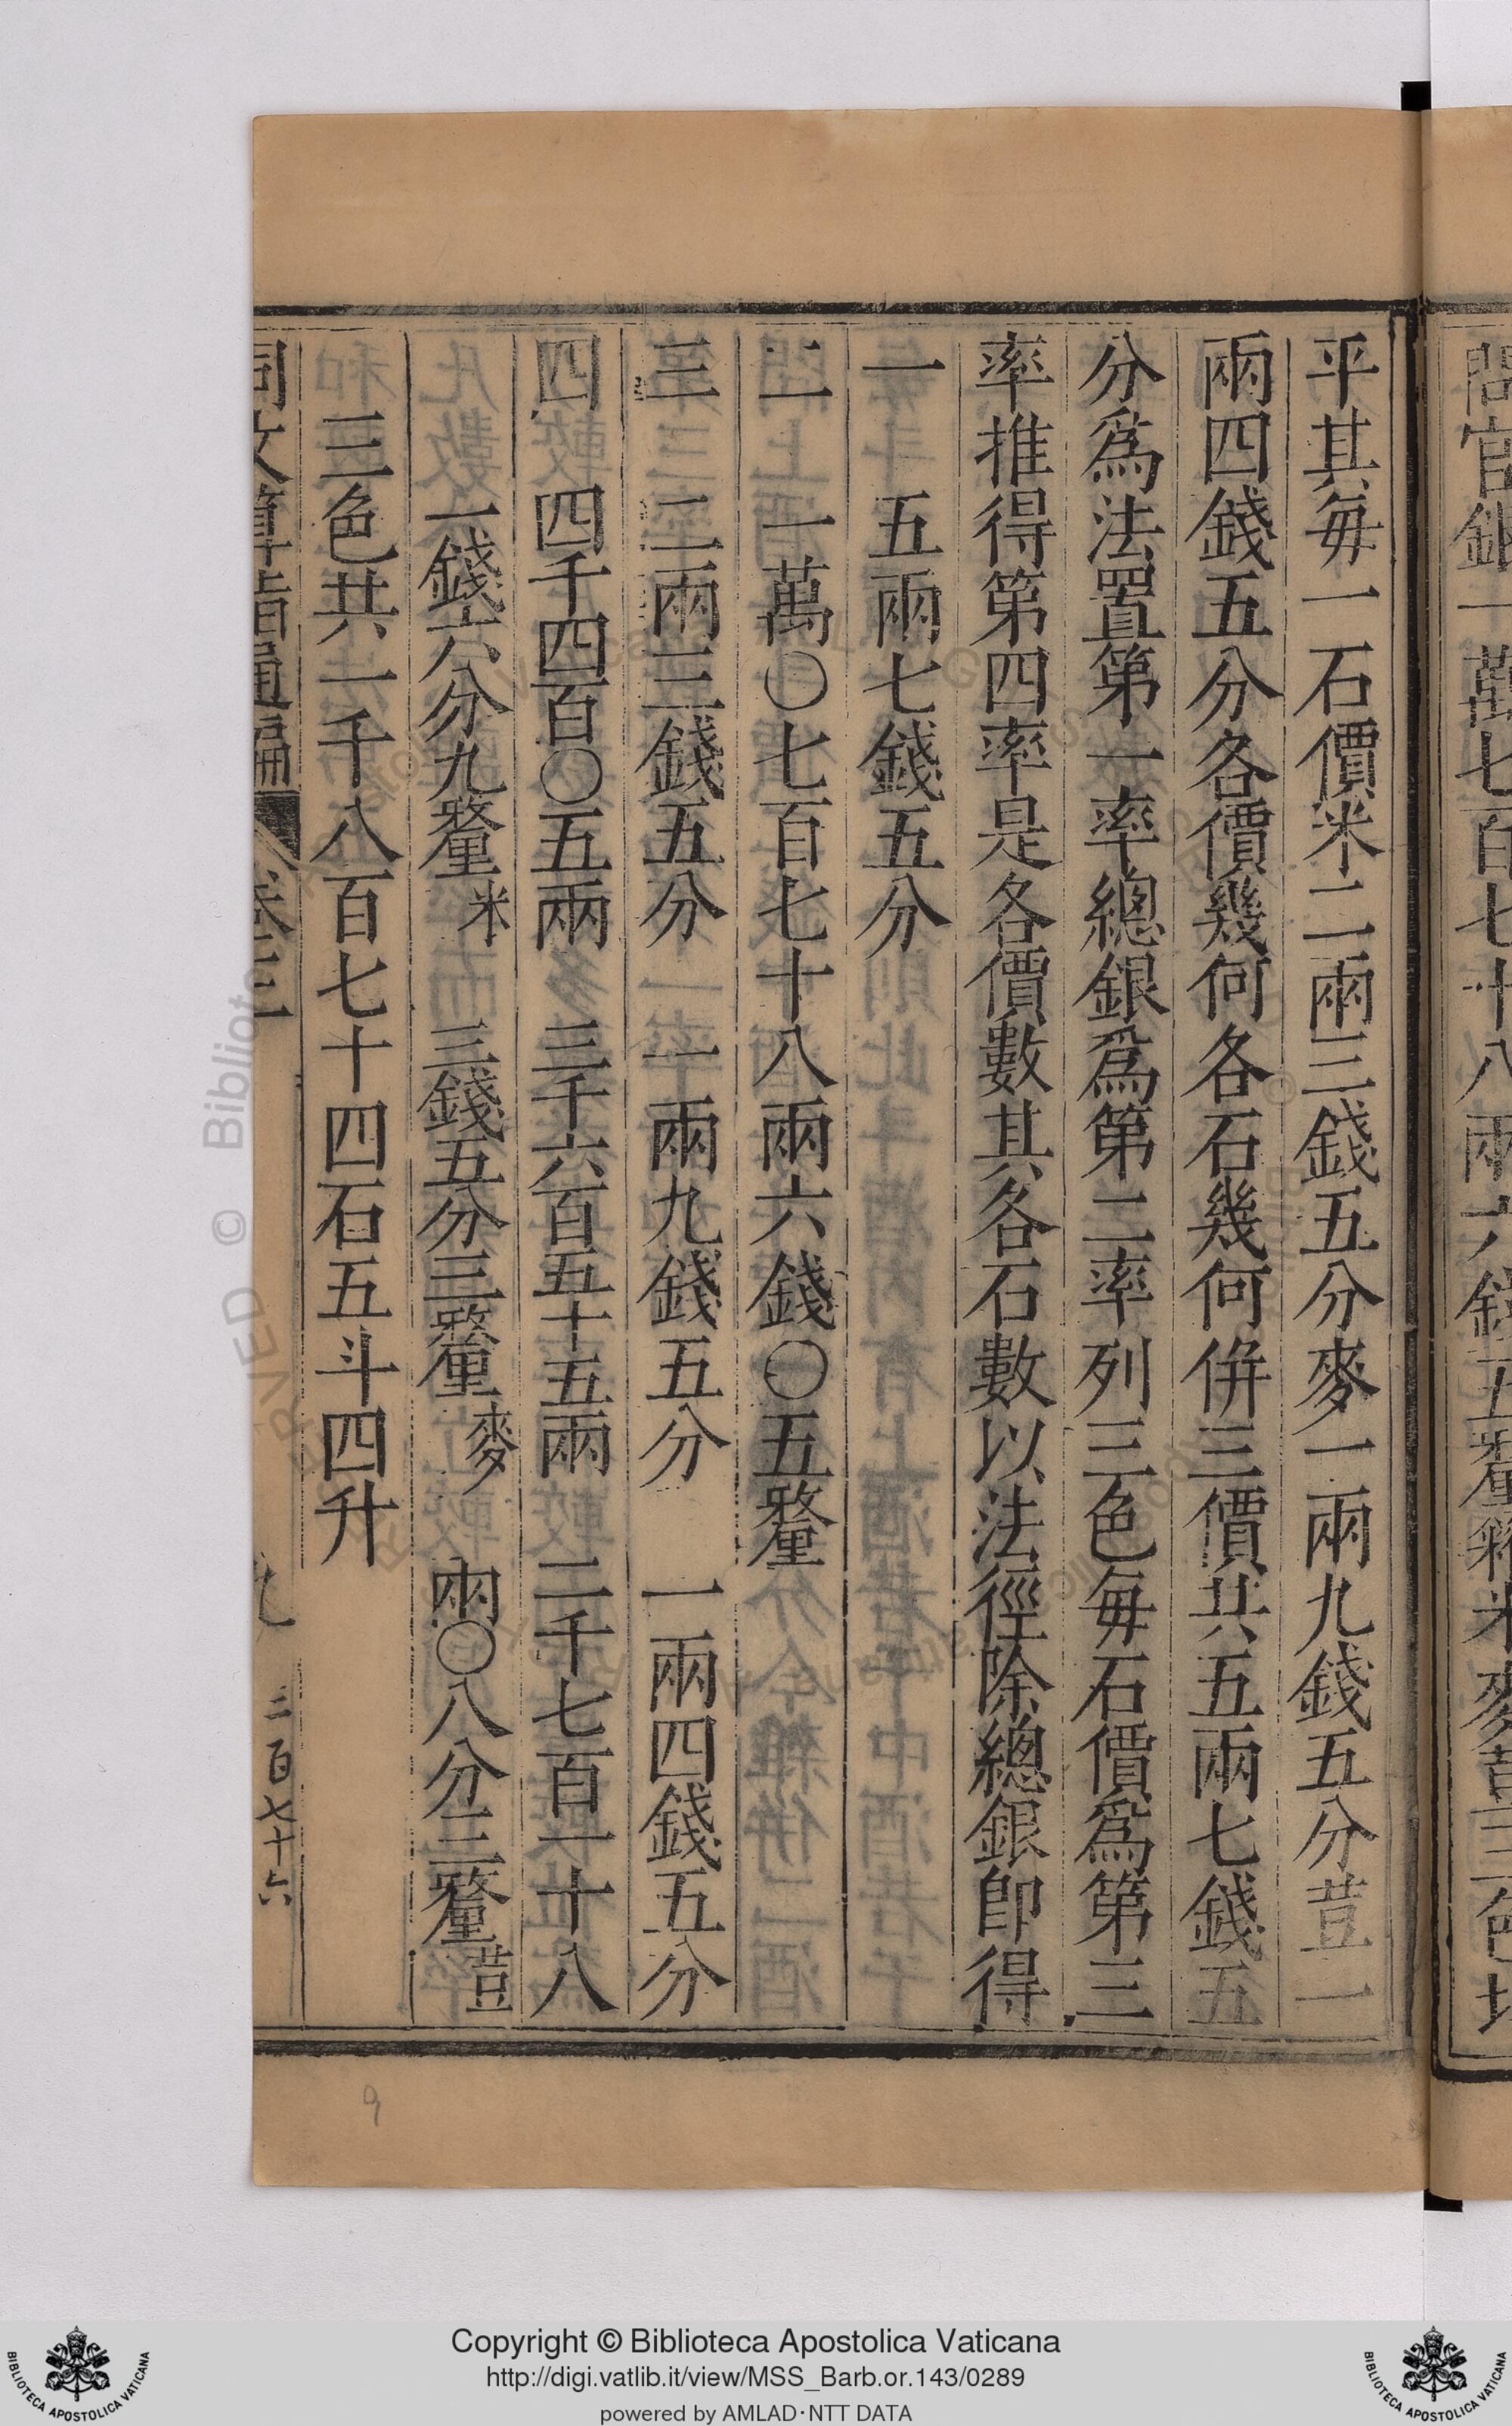 問官銀一萬七百七十八兩六錢五釐糴米麥荳三色均
平其每一石價米二兩三錢五分麥一兩九錢五分荳一
兩四錢五分各價幾何各石幾何倂三價共五兩七錢五
分爲法置第一率總銀爲第二率列三色每石價爲第三
率推得第四率是各價數其各石數以法徑除總銀卽得
一 五兩七錢五分
二 一萬〇七百七十八兩六錢〇五釐
三 二兩三錢五分 一兩九錢五分 一兩四錢五分
四 四千四百〇五兩 三千六百五十五兩 二千七百一十八
一錢六分九釐米 三錢五分三釐麥 兩〇八分三釐荳
三色共一千八百七十四石五斗四升
同文算指通編 卷三 九 二百七十六
9
Copyright © Biblioteca Apostolica Vaticana
http://digi.vatlib.it/view/MSS_Barb.or.143/0289
powered by AMLAD·NTT DATA
BIBLIOTECA APOSTOLICA VATICANA
BIBLIOTECA APOSTOLICA VATICANA